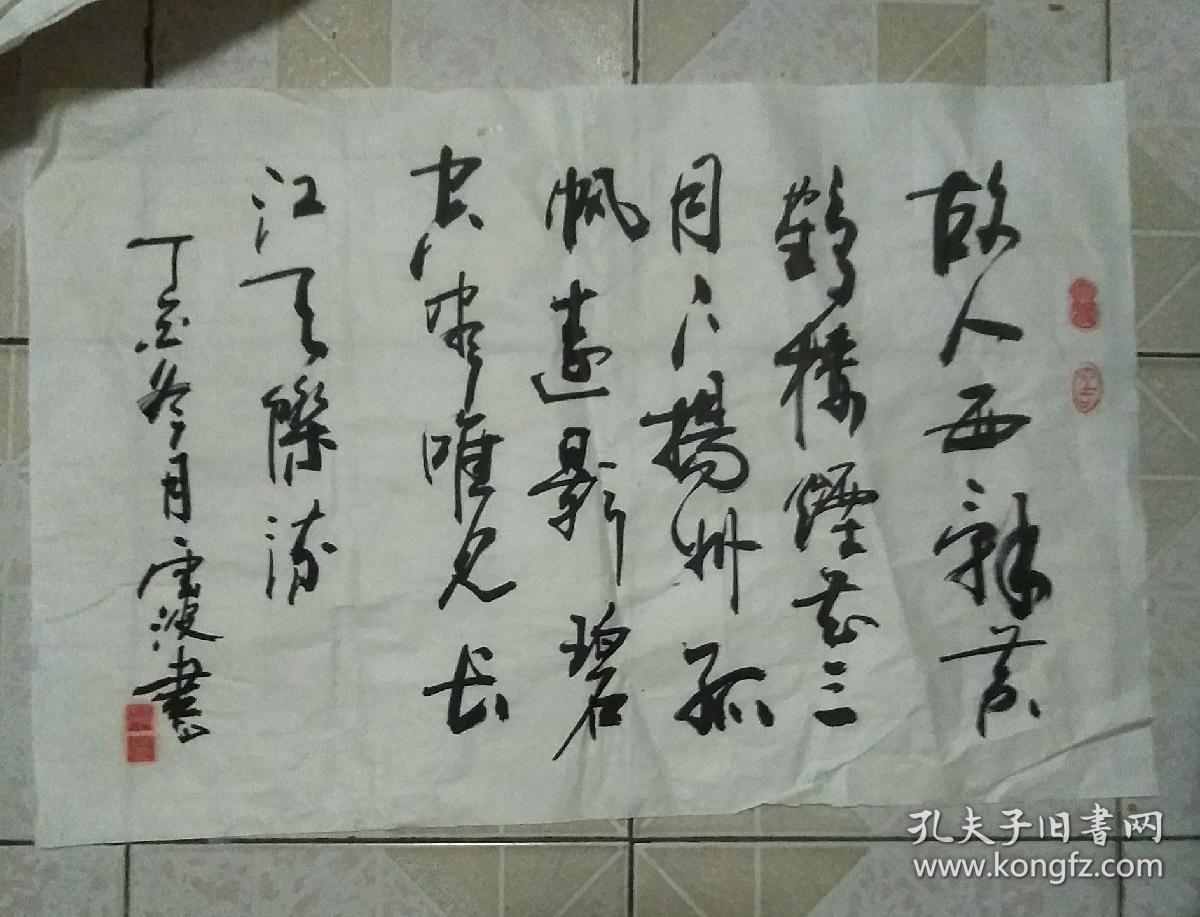 故人西辞黄
鹤楼煙花三
月下揚州孤
帆遠影碧
空尽唯见长
江天際流
丁亥冬月雲波書
孔夫子旧書网
www.kongfz.com